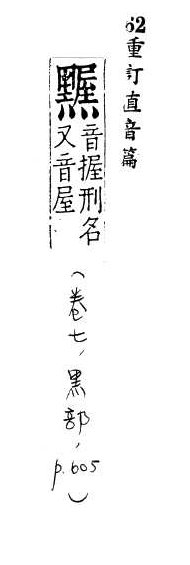 62重訂直音篇
音握刑名
又音屋
(卷七,黑部,p.605)